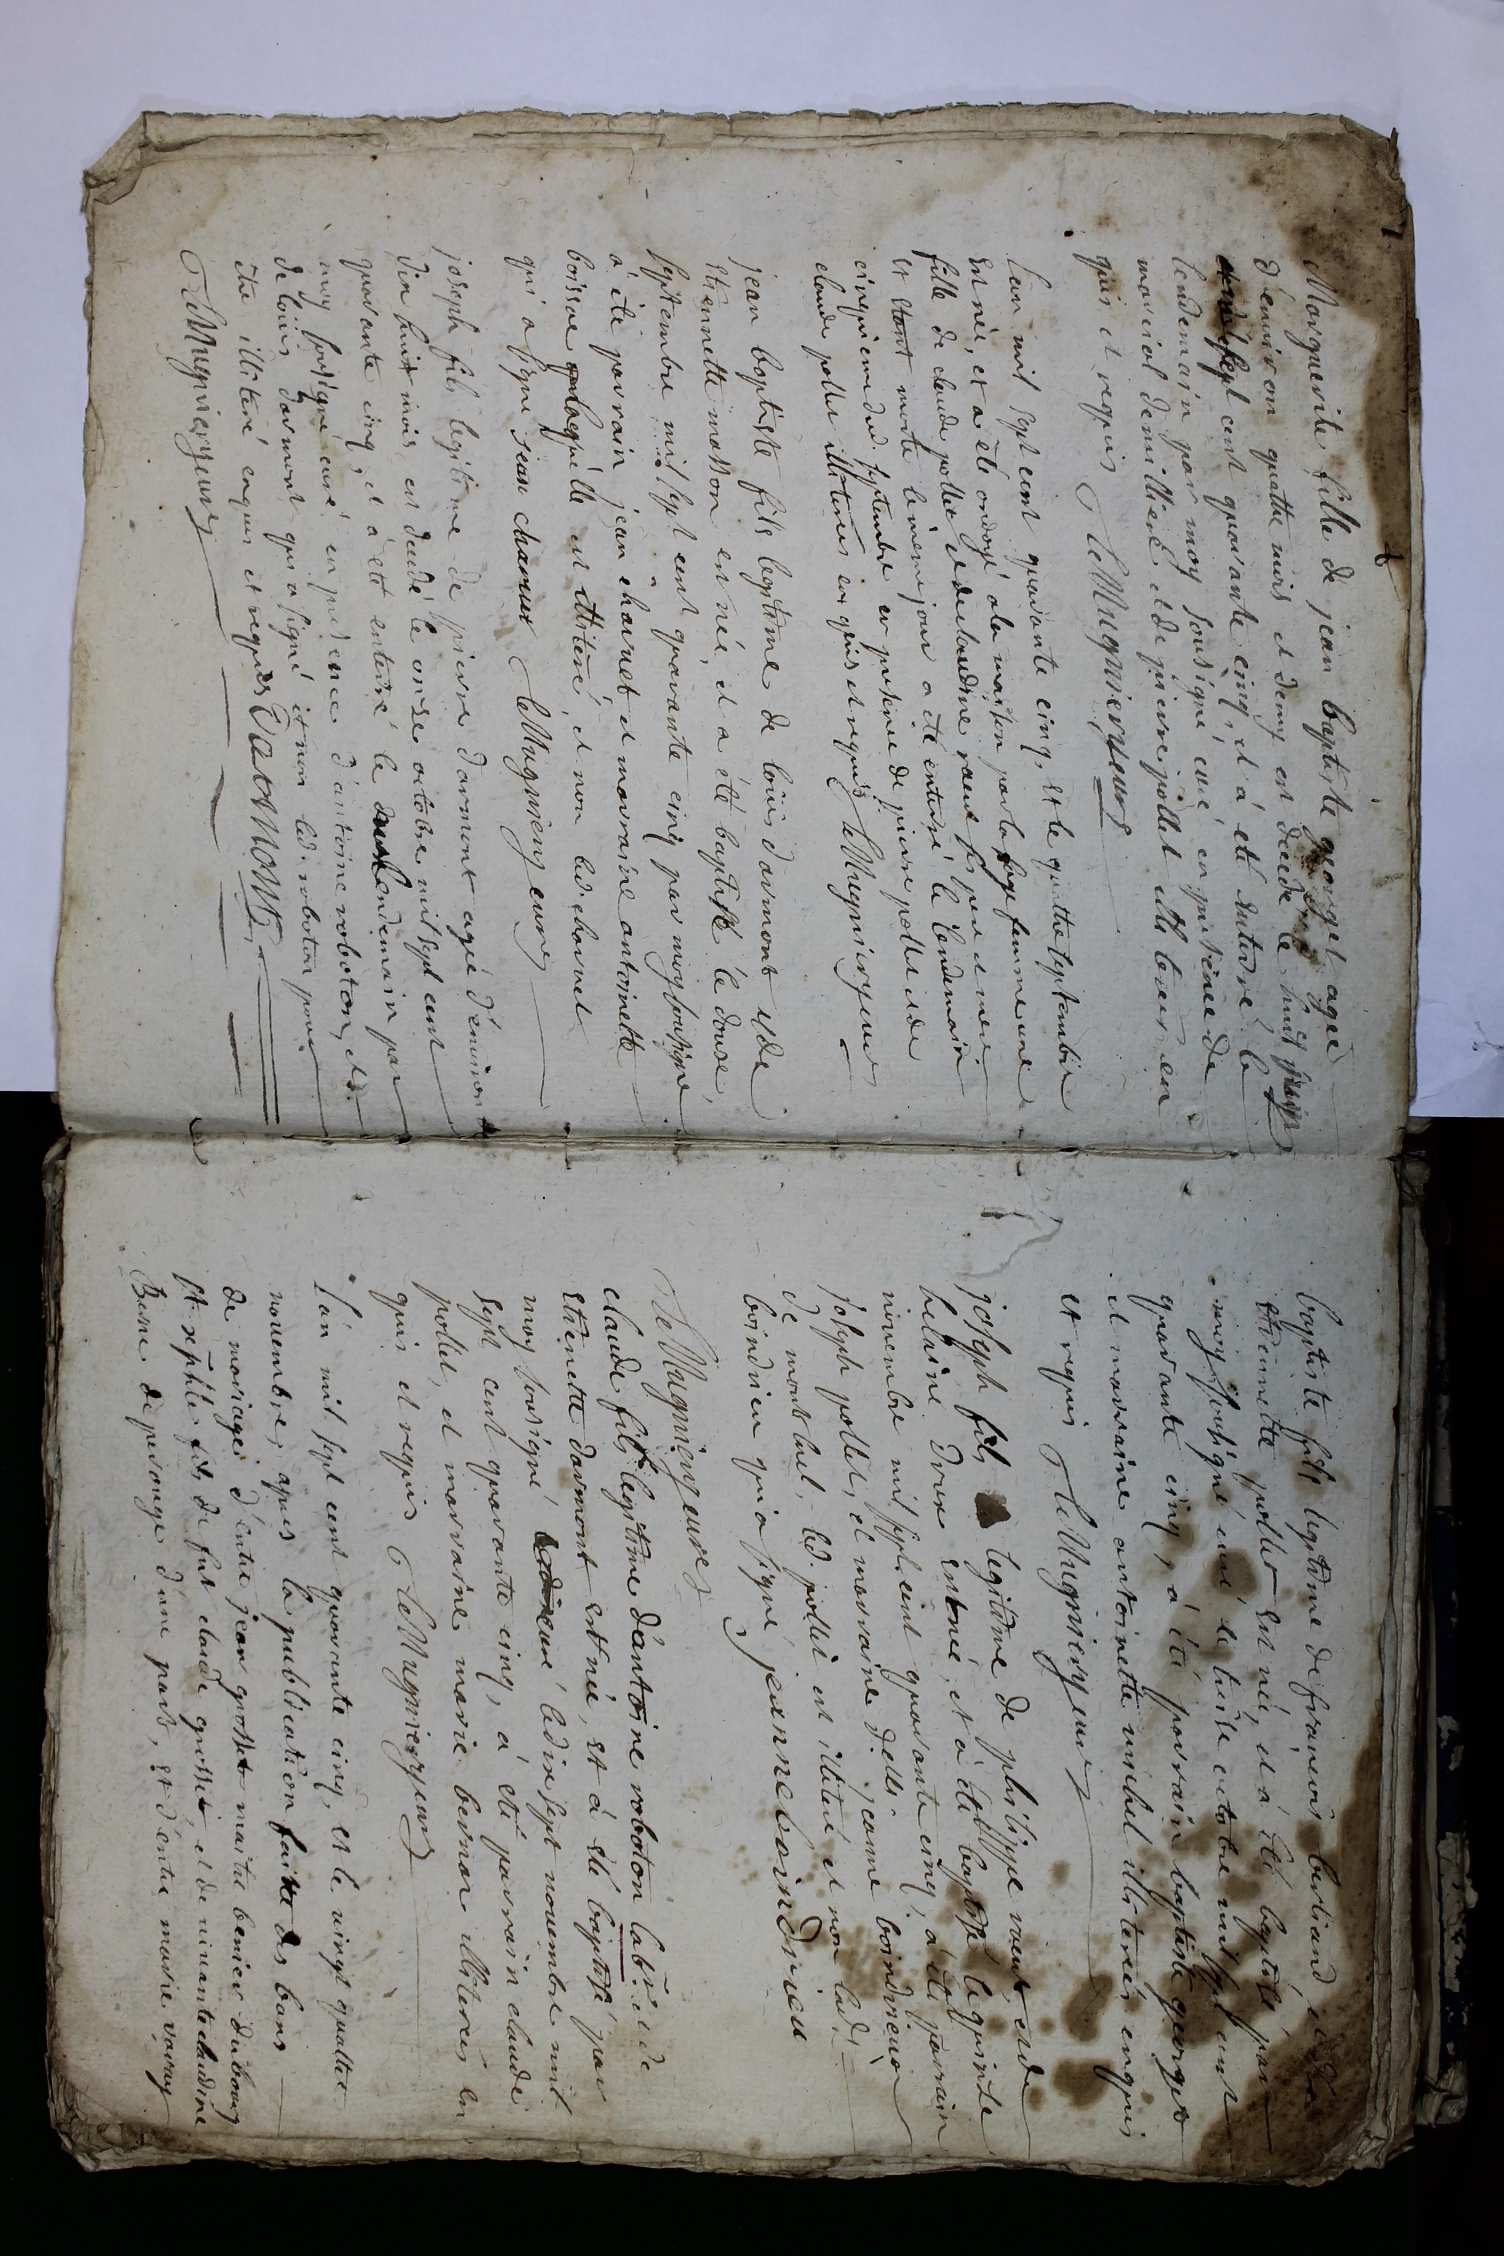 Marguerite fille de jean baptiste georget agée
d'environ quattre mois et demy est decedé le huit
sept cent quarante cinq, et à eté enterré le
lendemain par moy sousigné curé en presence de
marcial demilliere et de pierre pollet illiterés en
quis et requis LeMugnier curé
Lan mil sept cent quarante cinq, et le quattre septembre
est né, et a eté ondoyé a la maison par la sage femme une
fille de claude pollet et de claudine raent ses pere et mere
et etant morte le meme jour a eté enterré le lendemain
cinquieme dud. septembre en presence de pierre pollet et de
claude pollet illiterés enquis et requis LeMugnier curé
jean baptiste fils legitime de loüis darmont et de
etiennette masson est né, et a eté baptisé le douze
septembre mil sept cent quarante cinq par moy sousigné
à eté parrain jean charvet et marraine antoinette
boissae illiteré, et non led. charvet
qui a signé jean charuet LeMugnier curé
joseph fils legitime de pierre darmont agé d'environ
dix huit mois est decedé le onze octobre mil sept cent
quarante cinq, et a eté enterré le lendemain par
moy sousigné curé en presence d'antoine roboton, et
de loüis darmont qui a signé et non led. roboton pour
etre illiteré enquis et requis DARMONT
LeMugnier curé
baptiste fils legitime de francois berliand, et de
etiennette pollet est né, et à eté baptisé par
moy sousigné curé le treise octobre mil sept cent
quarante cinq, à eté parrain baptiste georget
et marraine antoinette michel illiterés enquis
et requis LeMugnier curé
joseph fils legitime de philippe raent et de
helaine est né, et à eté baptisé le quinze
novembre mil sept cent quarante cinq, à eté parrain
joseph pollet, et marraine delle jeanne boindrieu
de montluel, led. pollet est illiteré et non lad.
boindrieu qui a signé, jeanne boindrieu
LeMugnier curé
claude fils legitime d'antoine roboton labr. et de
etiennette darmont est né, et à eté baptisé par
moy sousigné curé le dix sept novembre mil
sept cent quarante cinq, à eté parrain claude
pollet, et marraine marie bernar illiterés en
quis et requis LeMugnier curé
l'an mil sept cent quarante cinq, et le vingt quattre
novembre, apres la publication faitte des bans
de mariages d'entre jean grosset maitre du bourg
st. fils de fut claude grosset et de vivante claudine
Bune de perouge d'une part, et d'entre marie